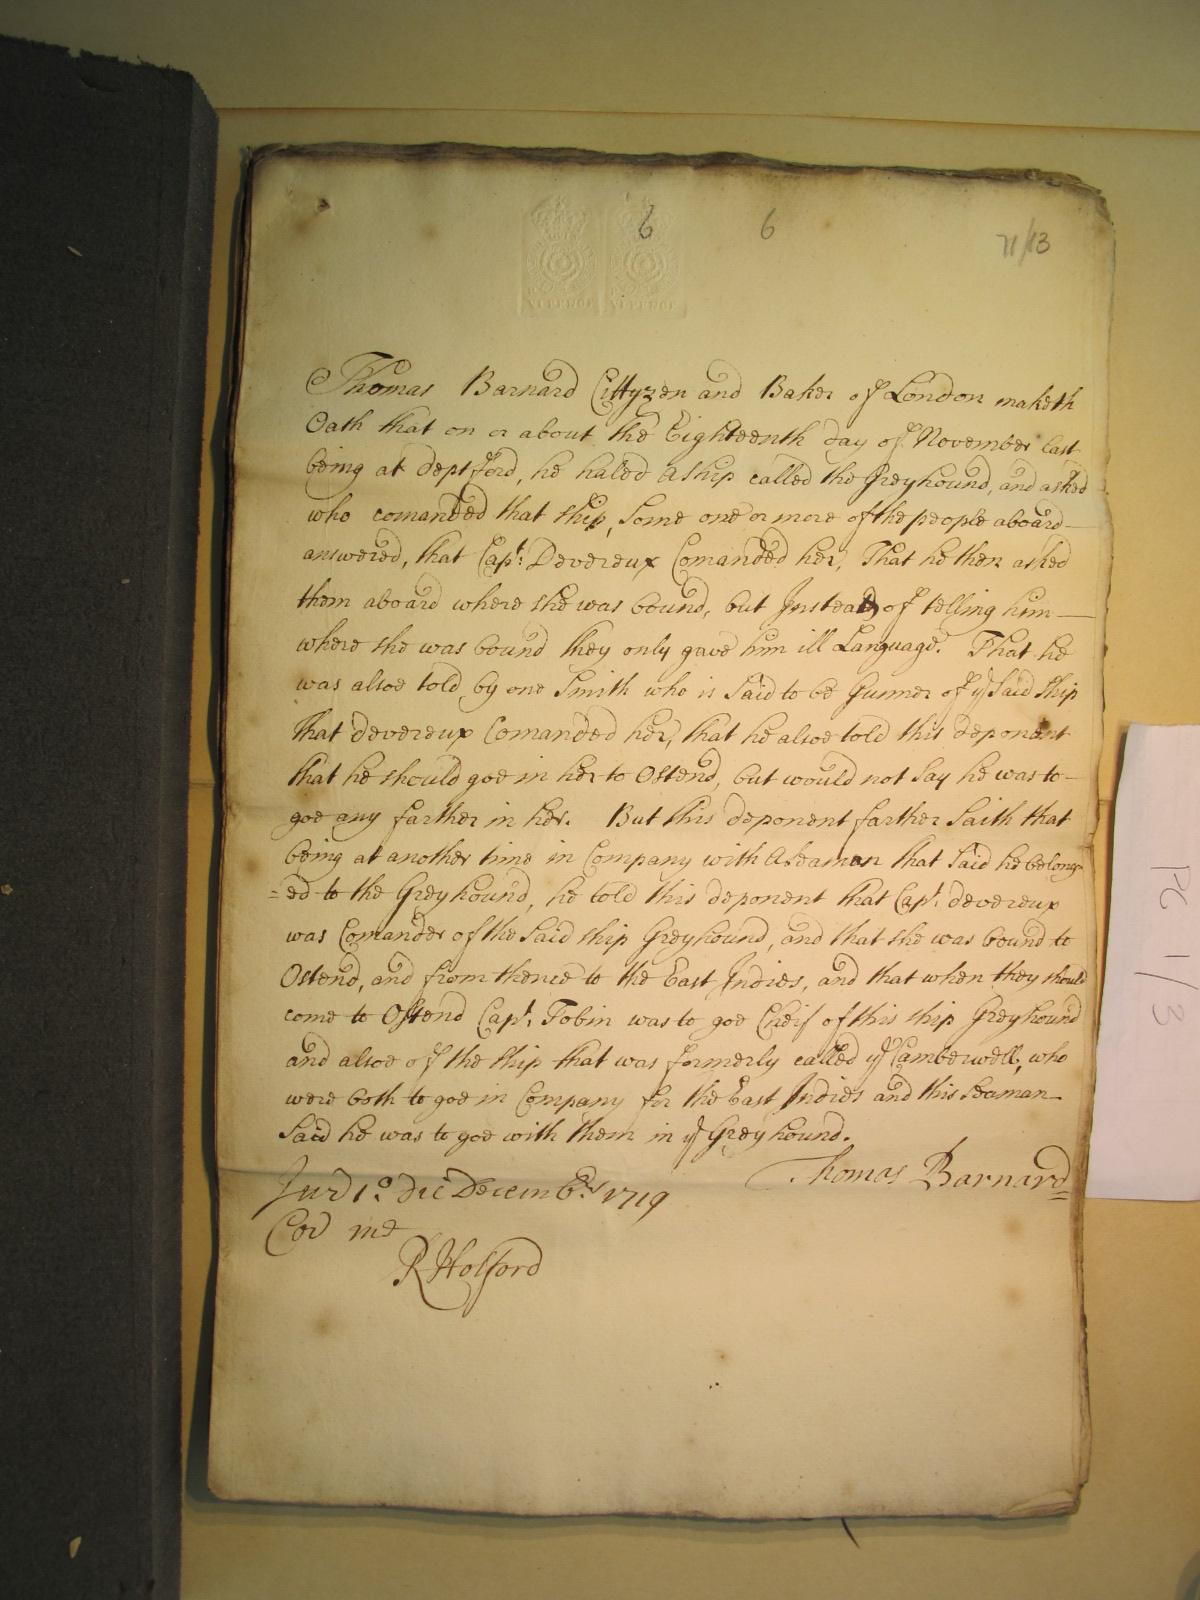 6 6 71/13
VI PENCE VI PENCE
Thomas Barnard Cittyzen and Baker of London maketh
Oath that on or about the Eighteenth day of November last
being at Deptford, he haled a ship called the Greyhound, and asked
who comanded that ship, Some one or more of the people aboard
answered, that Capt: Devereux Comanded her, That he then asked
them aboard where she was bound, but Instead of telling him
where she was bound they only gave him ill Language. That he
was alsoe told by one Smith who is Said to be Gunner of ye Said ship
that Devereux Comanded her, that he alsoe told this deponent
that he should goe in her to Ostend, but would not Say he was to
goe any farther in her. But this deponent farther Saith that
being at another time in Company with a Seaman that Said he belong=
=ed to the Greyhound, he told this deponent that Capt. Devereux
was Comander of the Said ship Greyhound, and that she was bound to
Ostend, and from thence to the East Indies, and that when they should
come to Ostend Capt. Tobin was to goe Cheif of this ship Greyhound
and alsoe of the ship that was formerly called ye Camberwell, who
were both to goe in Company for the East Indies and this Seaman
Said he was to goe with them in ye Greyhound.
Jur 1o die Decembris 1719 Thomas Barnard
Cor me
R Holford
PC 1/3